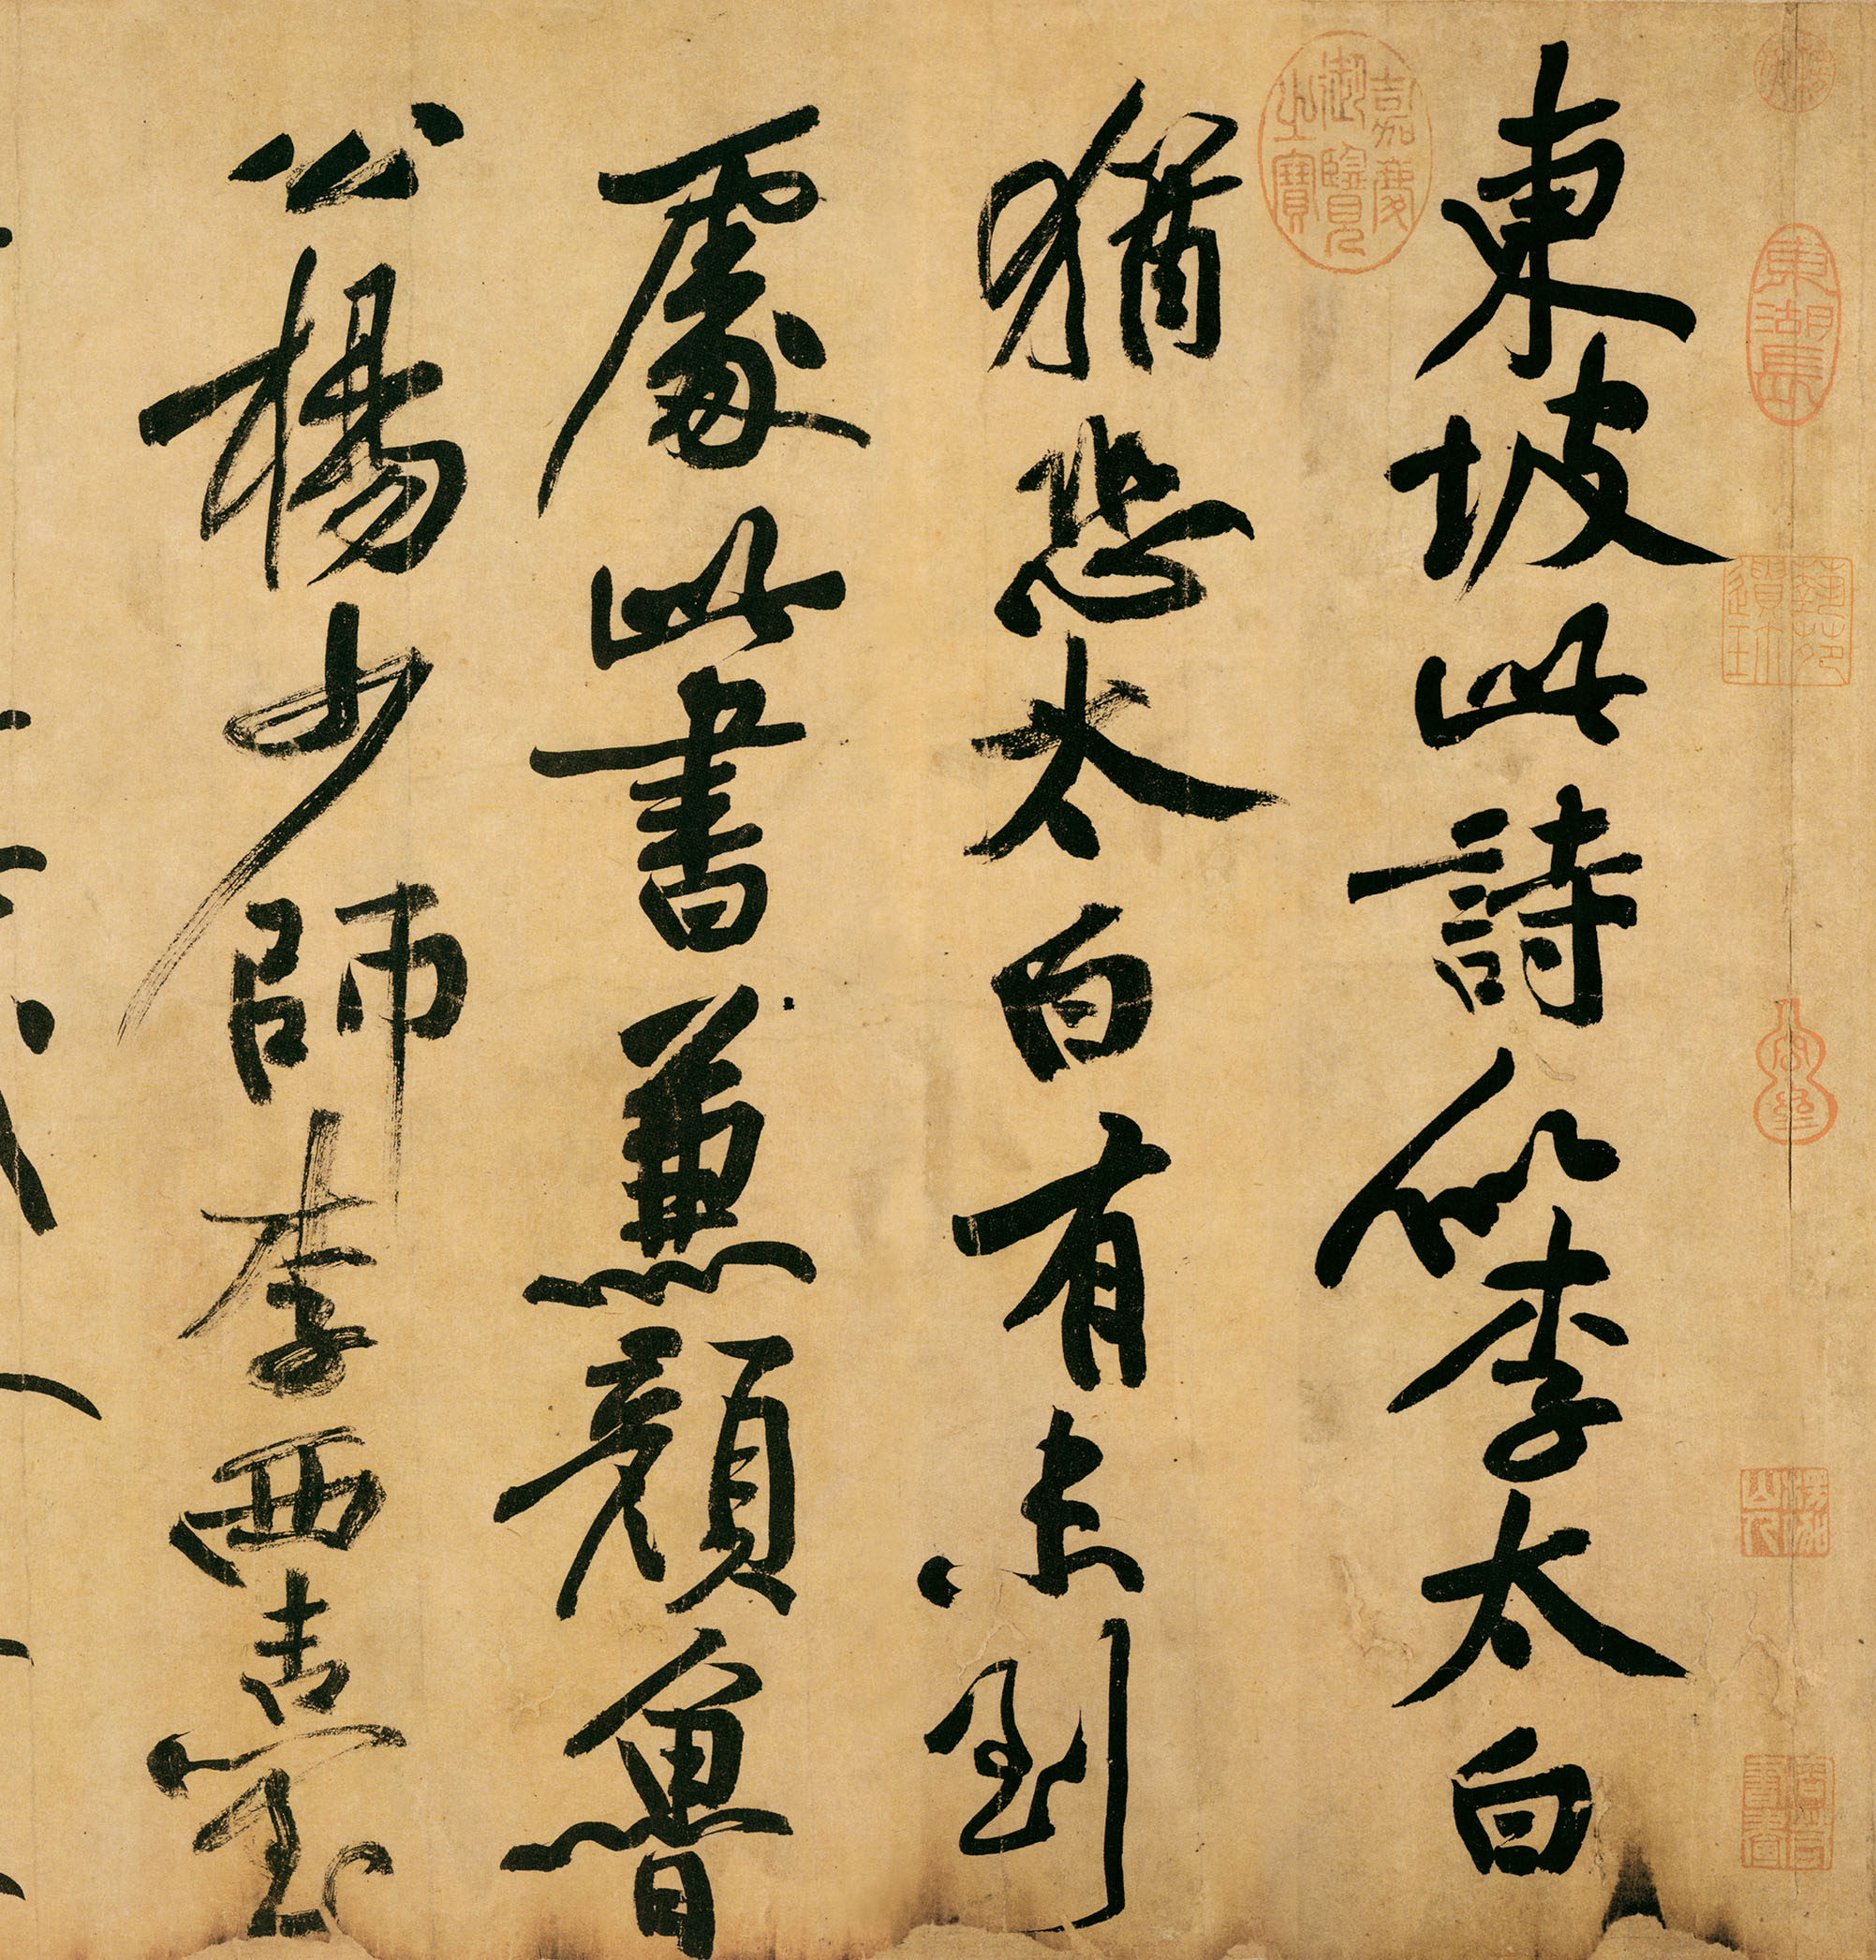 東坡此詩似李太白
猶恐太白有未到
處此書兼顔魯
公楊少師李西臺
嘉慶御覽之寶
東湖長